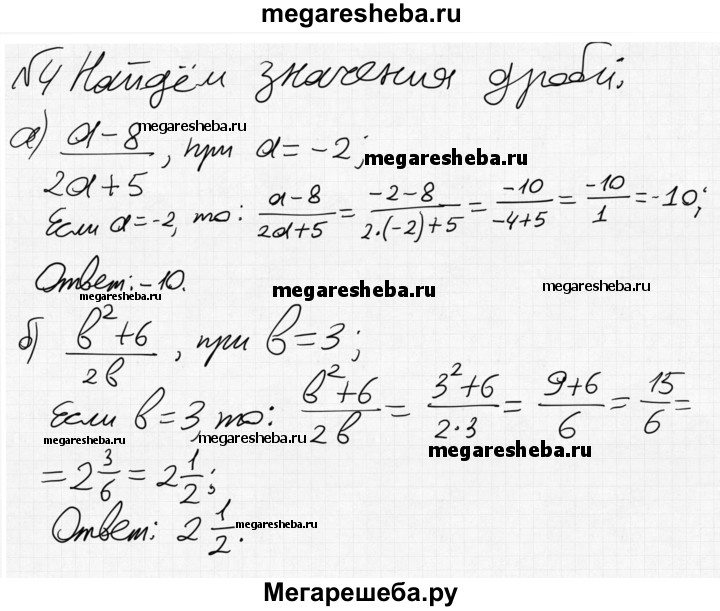 megaresheba.ru
№4 Найдём значения дроби.
а) (a-8)/(2a+5), при a=-2;
megaresheba.ru
megaresheba.ru
Если a=-2, то: (a-8)/(2a+5) = (-2-8)/(2·(-2)+5) = -10/(-4+5) = -10/1 = -10;
Ответ: -10.
megaresheba.ru
megaresheba.ru
megaresheba.ru
б) (b²+6)/(2b), при b=3;
Если b=3 то: (b²+6)/(2b) = (3²+6)/(2·3) = (9+6)/6 = 15/6 =
megaresheba.ru
megaresheba.ru
megaresheba.ru
= 2 3/6 = 2 1/2;
Ответ: 2 1/2.
megaresheba.ru
Мегарешеба.ру